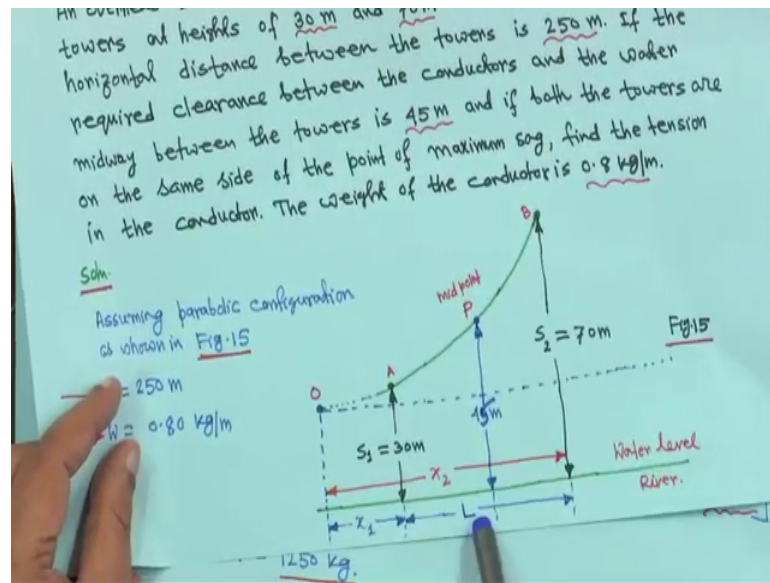 An
towers at heights of 30 m and 70 m
horizontal distance between the towers is 250 m. If the
required clearance between the conductors and the water
midway between the towers is 45 m and if both the towers are
on the same side of the point of maximum sag, find the tension
in the conductor. The weight of the conductor is 0.8 kg/m.
Soln.
Assuming parabolic configuration
as shown in Fig.15
= 250 m
W = 0.80 kg/m
B
mid point
P
A
O
S₂ = 70m
Fig.15
45m
S₁ = 30m
x₂
Water level
River.
x₁
L
1250 kg.